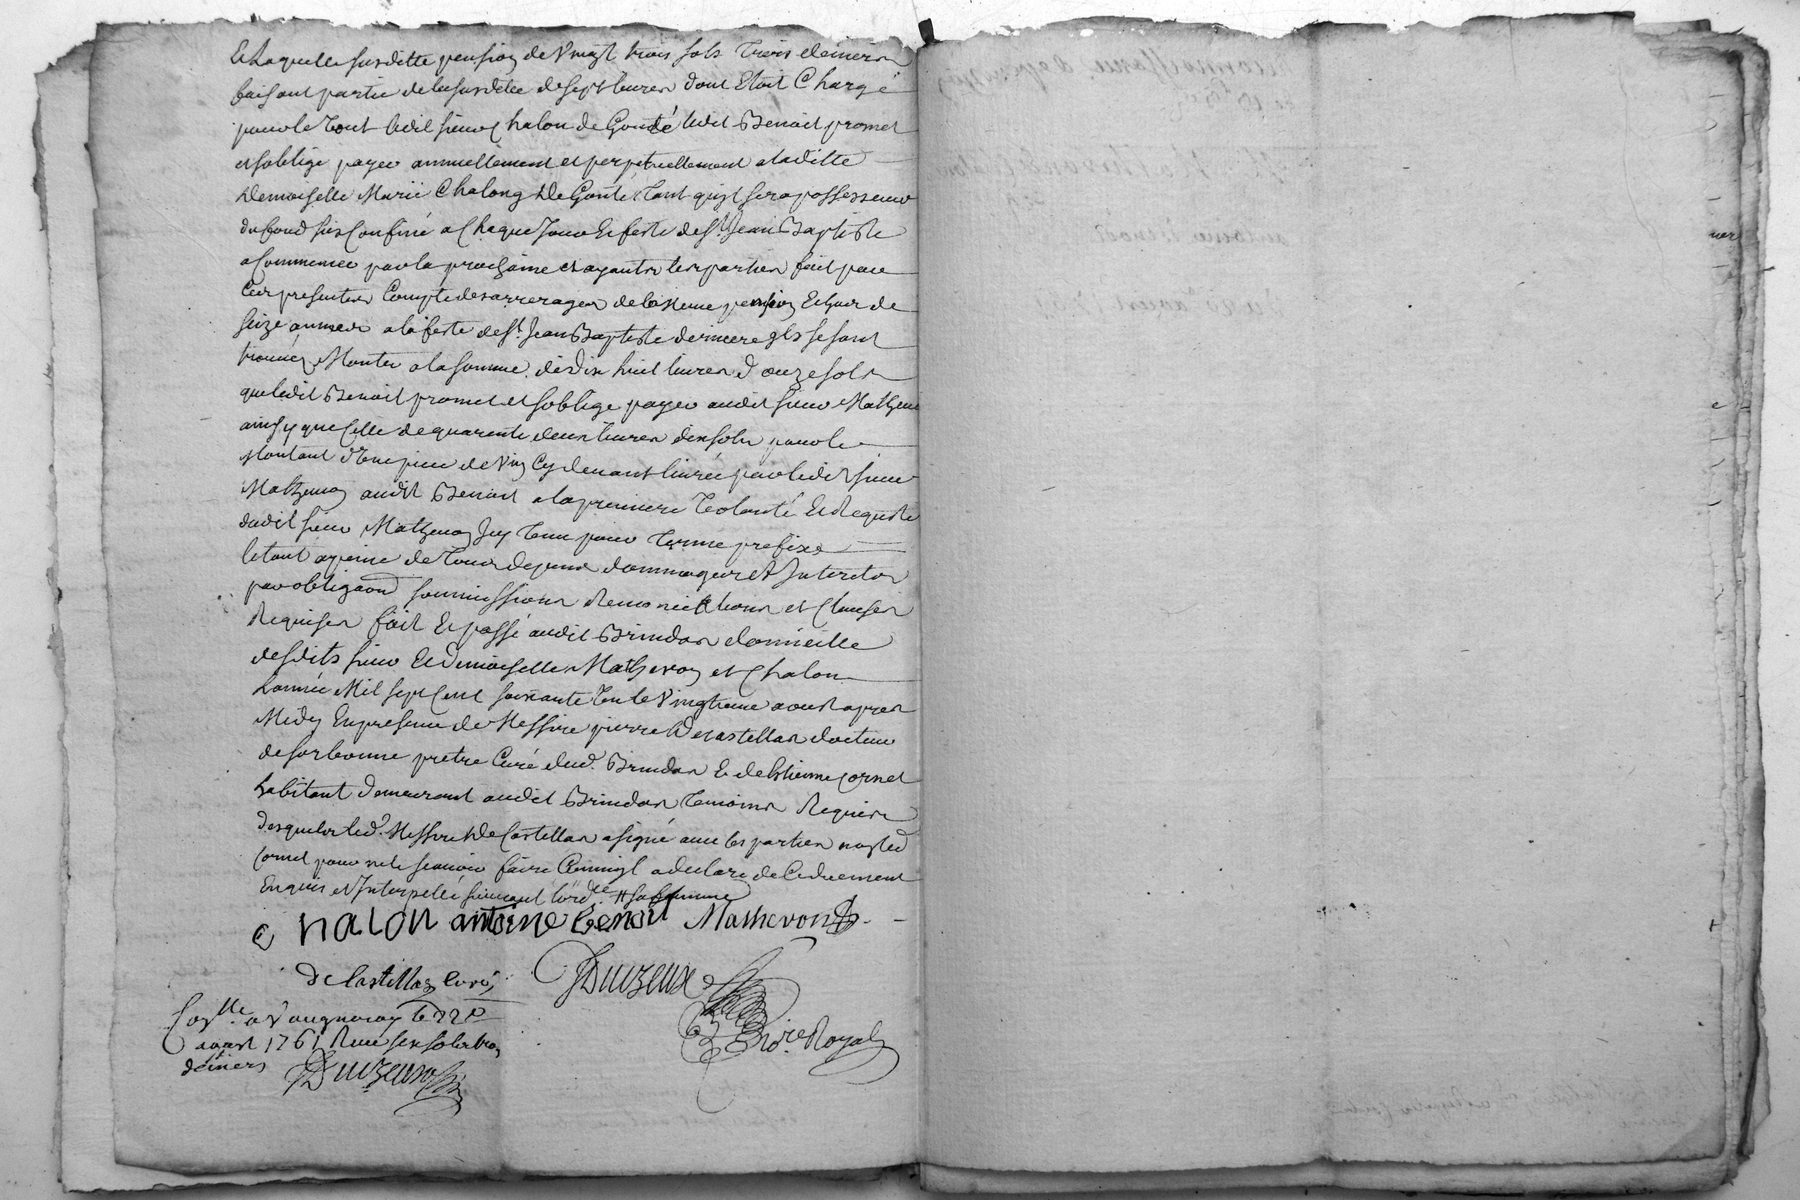 & Laquelle susditte pension de Vingt trois sols Trois deniers
faisant partie de la susditte de sept livres dont Etoit Chargé
pour le Tout ledit sieur Chalon de Gonté ledit Benoit promet
et soblige payer annuellement et perpetuellement a laditte
Demoiselle Marie Chalong De Gonté Tant quil sera possesseur
du fond sus Confiné a Chaque Jour & feste de St Jean Baptiste
a Commencer par la prochaine et ayants les parties fait par
Ces presentes Compte des arrerages de la meme pension Echus de
seize annees a la feste de St Jean Baptiste derniere ils se sont
trouvés Monter a la somme de dix huit livres douze sols
que ledit Benoit promet et soblige payer audit sieur Mathevon
ainsy que Celle de quarente deux livres dix sols pour le
Montant d'une piece de Vin Cy devant livrée par ledit sieur
Mathevon audit Benoit a la premiere Volonté & Requeste
dudit sieur Mathevon Icy Tenu pour Terme prefixe
le tout a peine de Tous depens dommages et Interets
par obligaon soumissions Renonciations et Clauses
Requises fait & passé audit Brindas domicille
desdits sieur & Demoiselle Mathevon et Chalon
Lannée Mil sept Cent soixante Un le Vingtieme aoust apres
Midy En presence de Messire pierre De Castellas docteur
de sorbonne pretre Curé dud. Brindas & de Etienne Cornet
habitant demeurant audit Brindas Temoins Requis
desquels led. Messire De Castellas a signé avec les parties non led
Cornet pour ne le scavoir faire Comme il a declaré de Ce duement
Enquis et Interpellé suivant lord.ce
Chalon antoine benoit Mathevon
De Castellas curé
Duzeux
No.re Royal
Con.lle a Vaugneray le 22e
aoust 1761 Reçu six sols trois
deniers
Duzeux